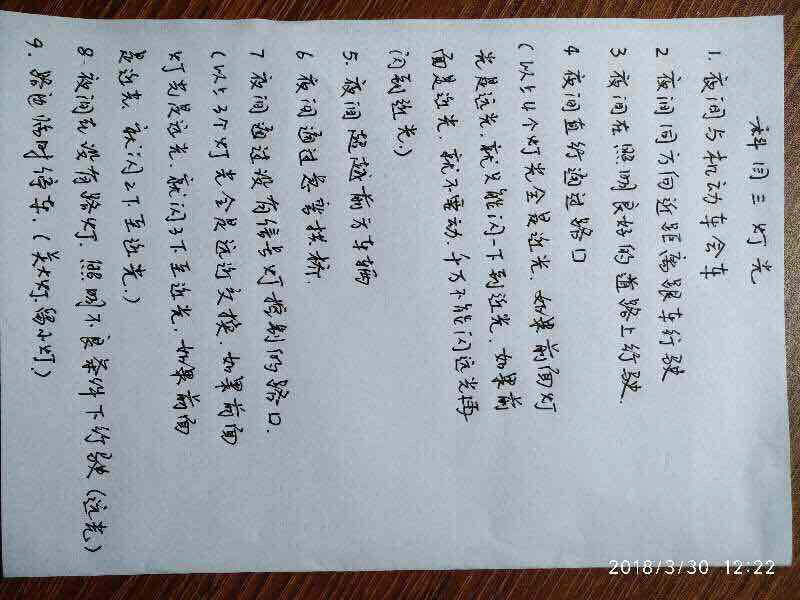 科目三灯光
1. 夜间与机动车会车
2 夜间同方向近距离跟车行驶
3 夜间在照明良好的道路上行驶.
4 夜间直行通过路口
(以上4个灯光全是近光.如果前面灯
光是远光.就只能闪一下到近光.如果前
面是近光.就不要动.千万不能闪远光再
闪到近光.)
5. 夜间超越前方车辆
6 夜间通过急弯拱桥.
7 夜间通过没有信号灯控制的路口.
(以上3个灯光全是远近交换.如果前面
灯光是远光.就闪3下至近光.如果前面
是近光.就闪2下至近光.)
8 夜间在没有路灯.照明不良条件下行驶(远光)
9. 路边临时停车.(关大灯.留小灯.)
2018/3/30 12:22